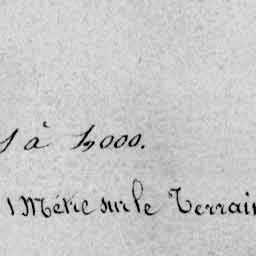 1 à 1,000.
1 Métre sur le Terrain